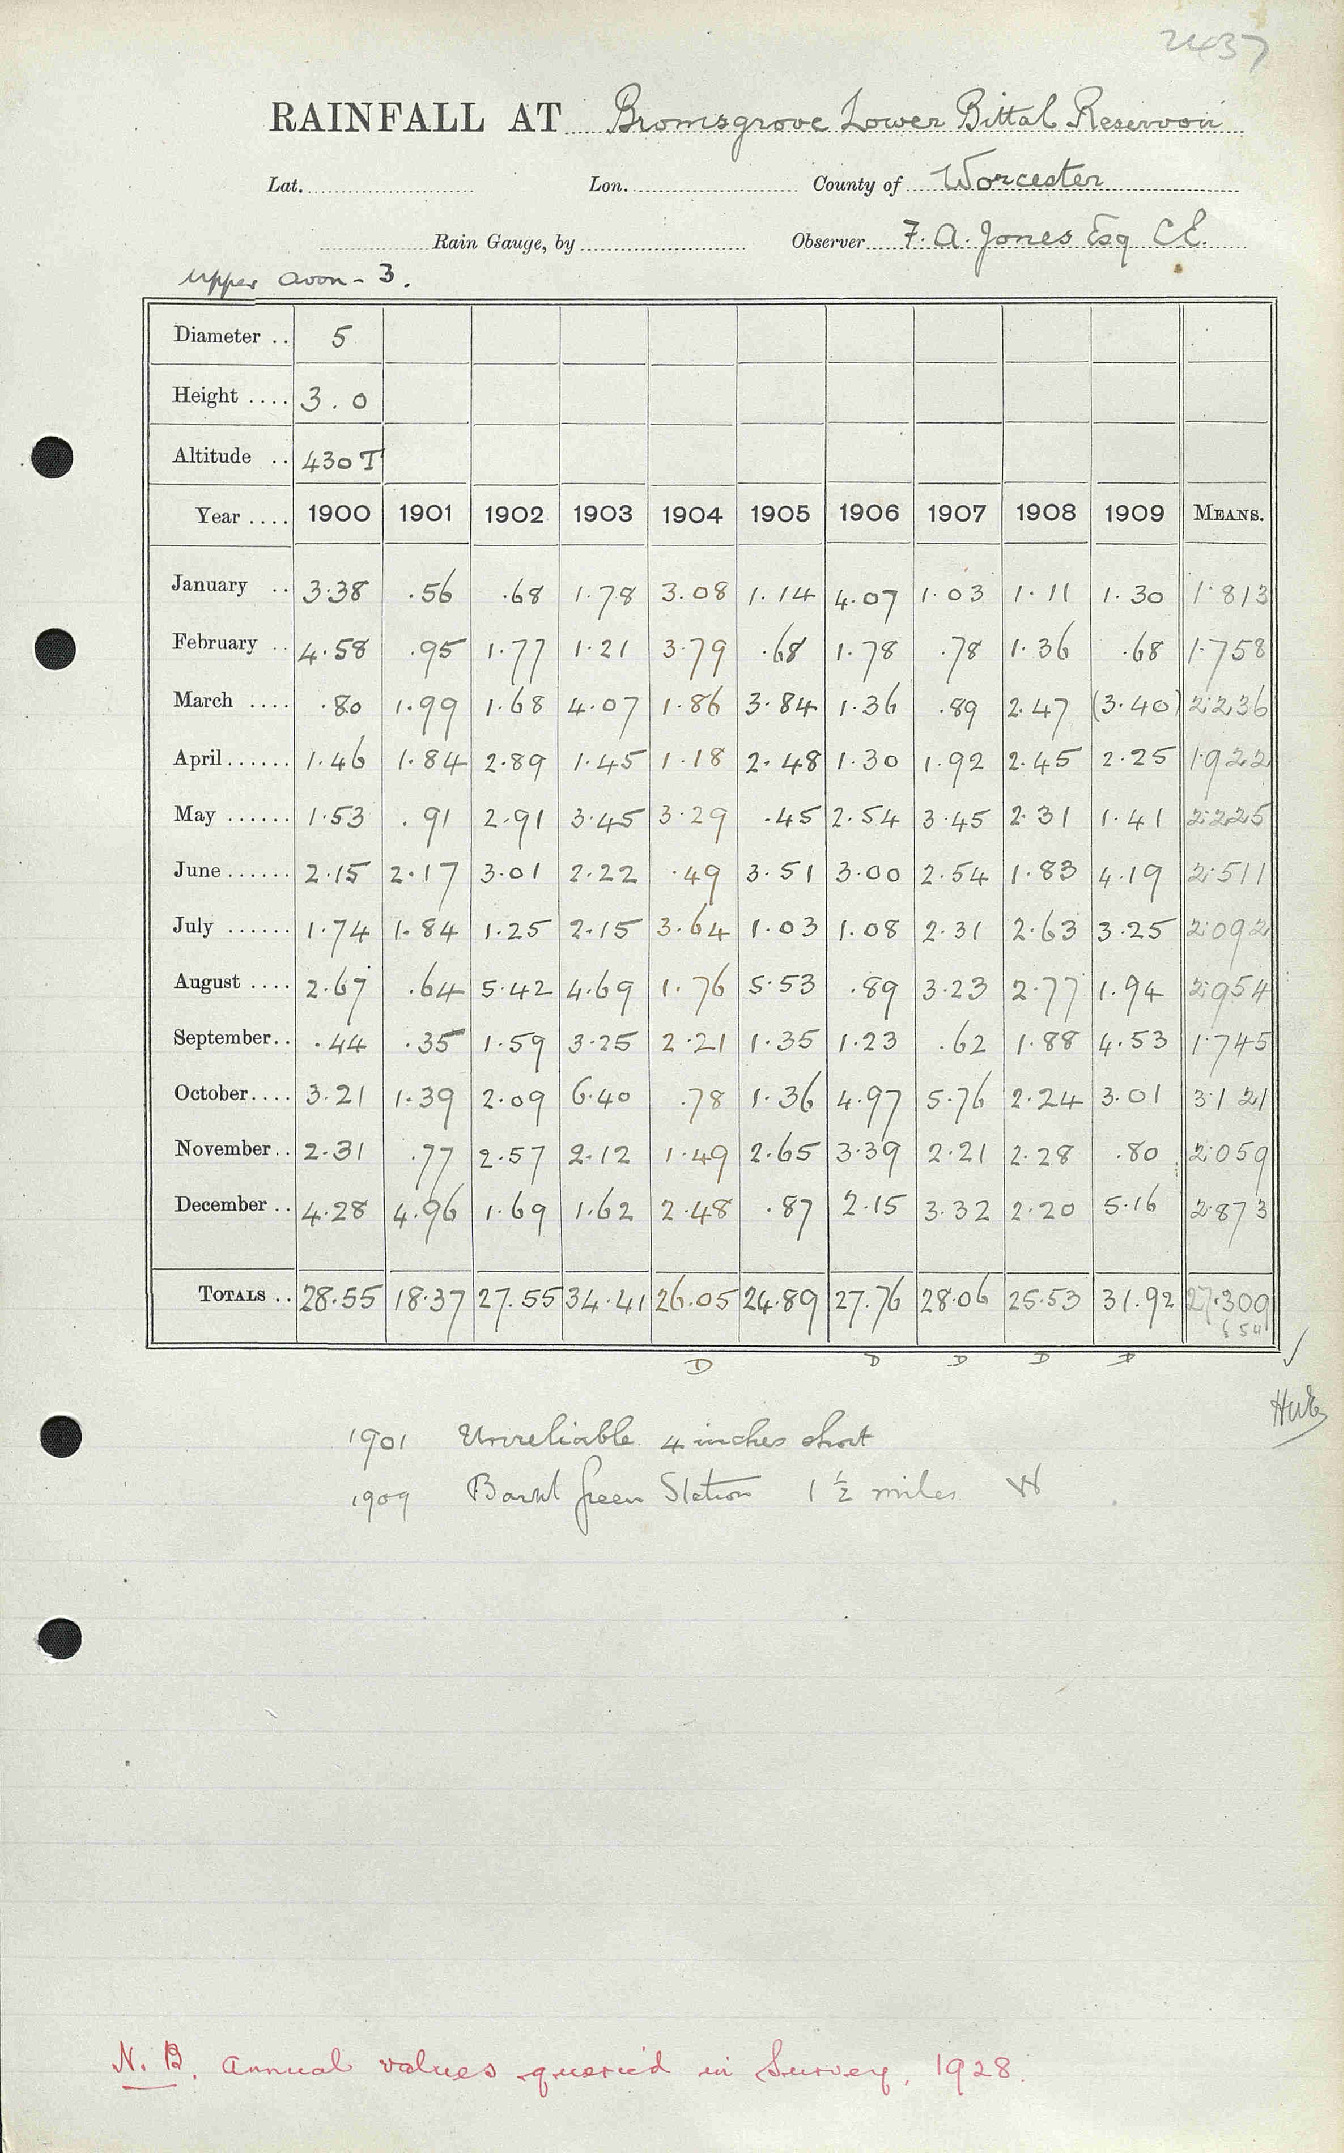 2437
RAINFALL AT Bromsgrove Lower Bittal Reservoir
Lat. Lon. County of Worcester
Rain Gauge, by Observer F. A. Jones Esq C.E.
Upper Avon - 3.
Diameter .. 5
Height .... 3.0
Altitude .. 430 T
Year .... 1900 1901 1902 1903 1904 1905 1906 1907 1908 1909 MEANS.
January .. 3.38 .56 .68 1.78 3.08 1.14 4.07 1.03 1.11 1.30 1.813
February .. 4.58 .95 1.77 1.21 3.79 .68 1.78 .78 1.36 .68 1.758
March .... .80 1.99 1.68 4.07 1.86 3.84 1.36 .89 2.47 (3.40) 2.236
April...... 1.46 1.84 2.89 1.45 1.18 2.48 1.30 1.92 2.45 2.25 1.922
May ...... 1.53 .91 2.91 3.45 3.29 .45 2.54 3.45 2.31 1.41 2.225
June...... 2.15 2.17 3.01 2.22 .49 3.51 3.00 2.54 1.83 4.19 2.511
July ...... 1.74 1.84 1.25 2.15 3.64 1.03 1.08 2.31 2.63 3.25 2.092
August .... 2.67 .64 5.42 4.69 1.76 5.53 .89 3.23 2.77 1.94 2.954
September.. .44 .35 1.59 3.25 2.21 1.35 1.23 .62 1.88 4.53 1.745
October.... 3.21 1.39 2.09 6.40 .78 1.36 4.97 5.76 2.24 3.01 3.121
November.. 2.31 .77 2.57 2.12 1.49 2.65 3.39 2.21 2.28 .80 2.059
December .. 4.28 4.96 1.69 1.62 2.48 .87 2.15 3.32 2.20 5.16 2.873
TOTALS .. 28.55 18.37 27.55 34.41 26.05 24.89 27.76 28.06 25.53 31.92 27.309
D D D D D
1901 Unreliable 4 inches short
1909 Barnt Green Station 1 1/2 miles W
N.B. Annual values queried in Survey, 1928.